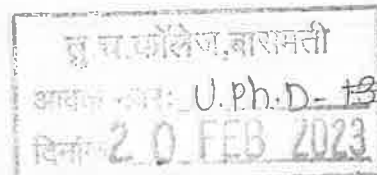 तु. च. कॉलेज, बारामती
आवक U.Ph.D-13
दिनांक 20 FEB 2023